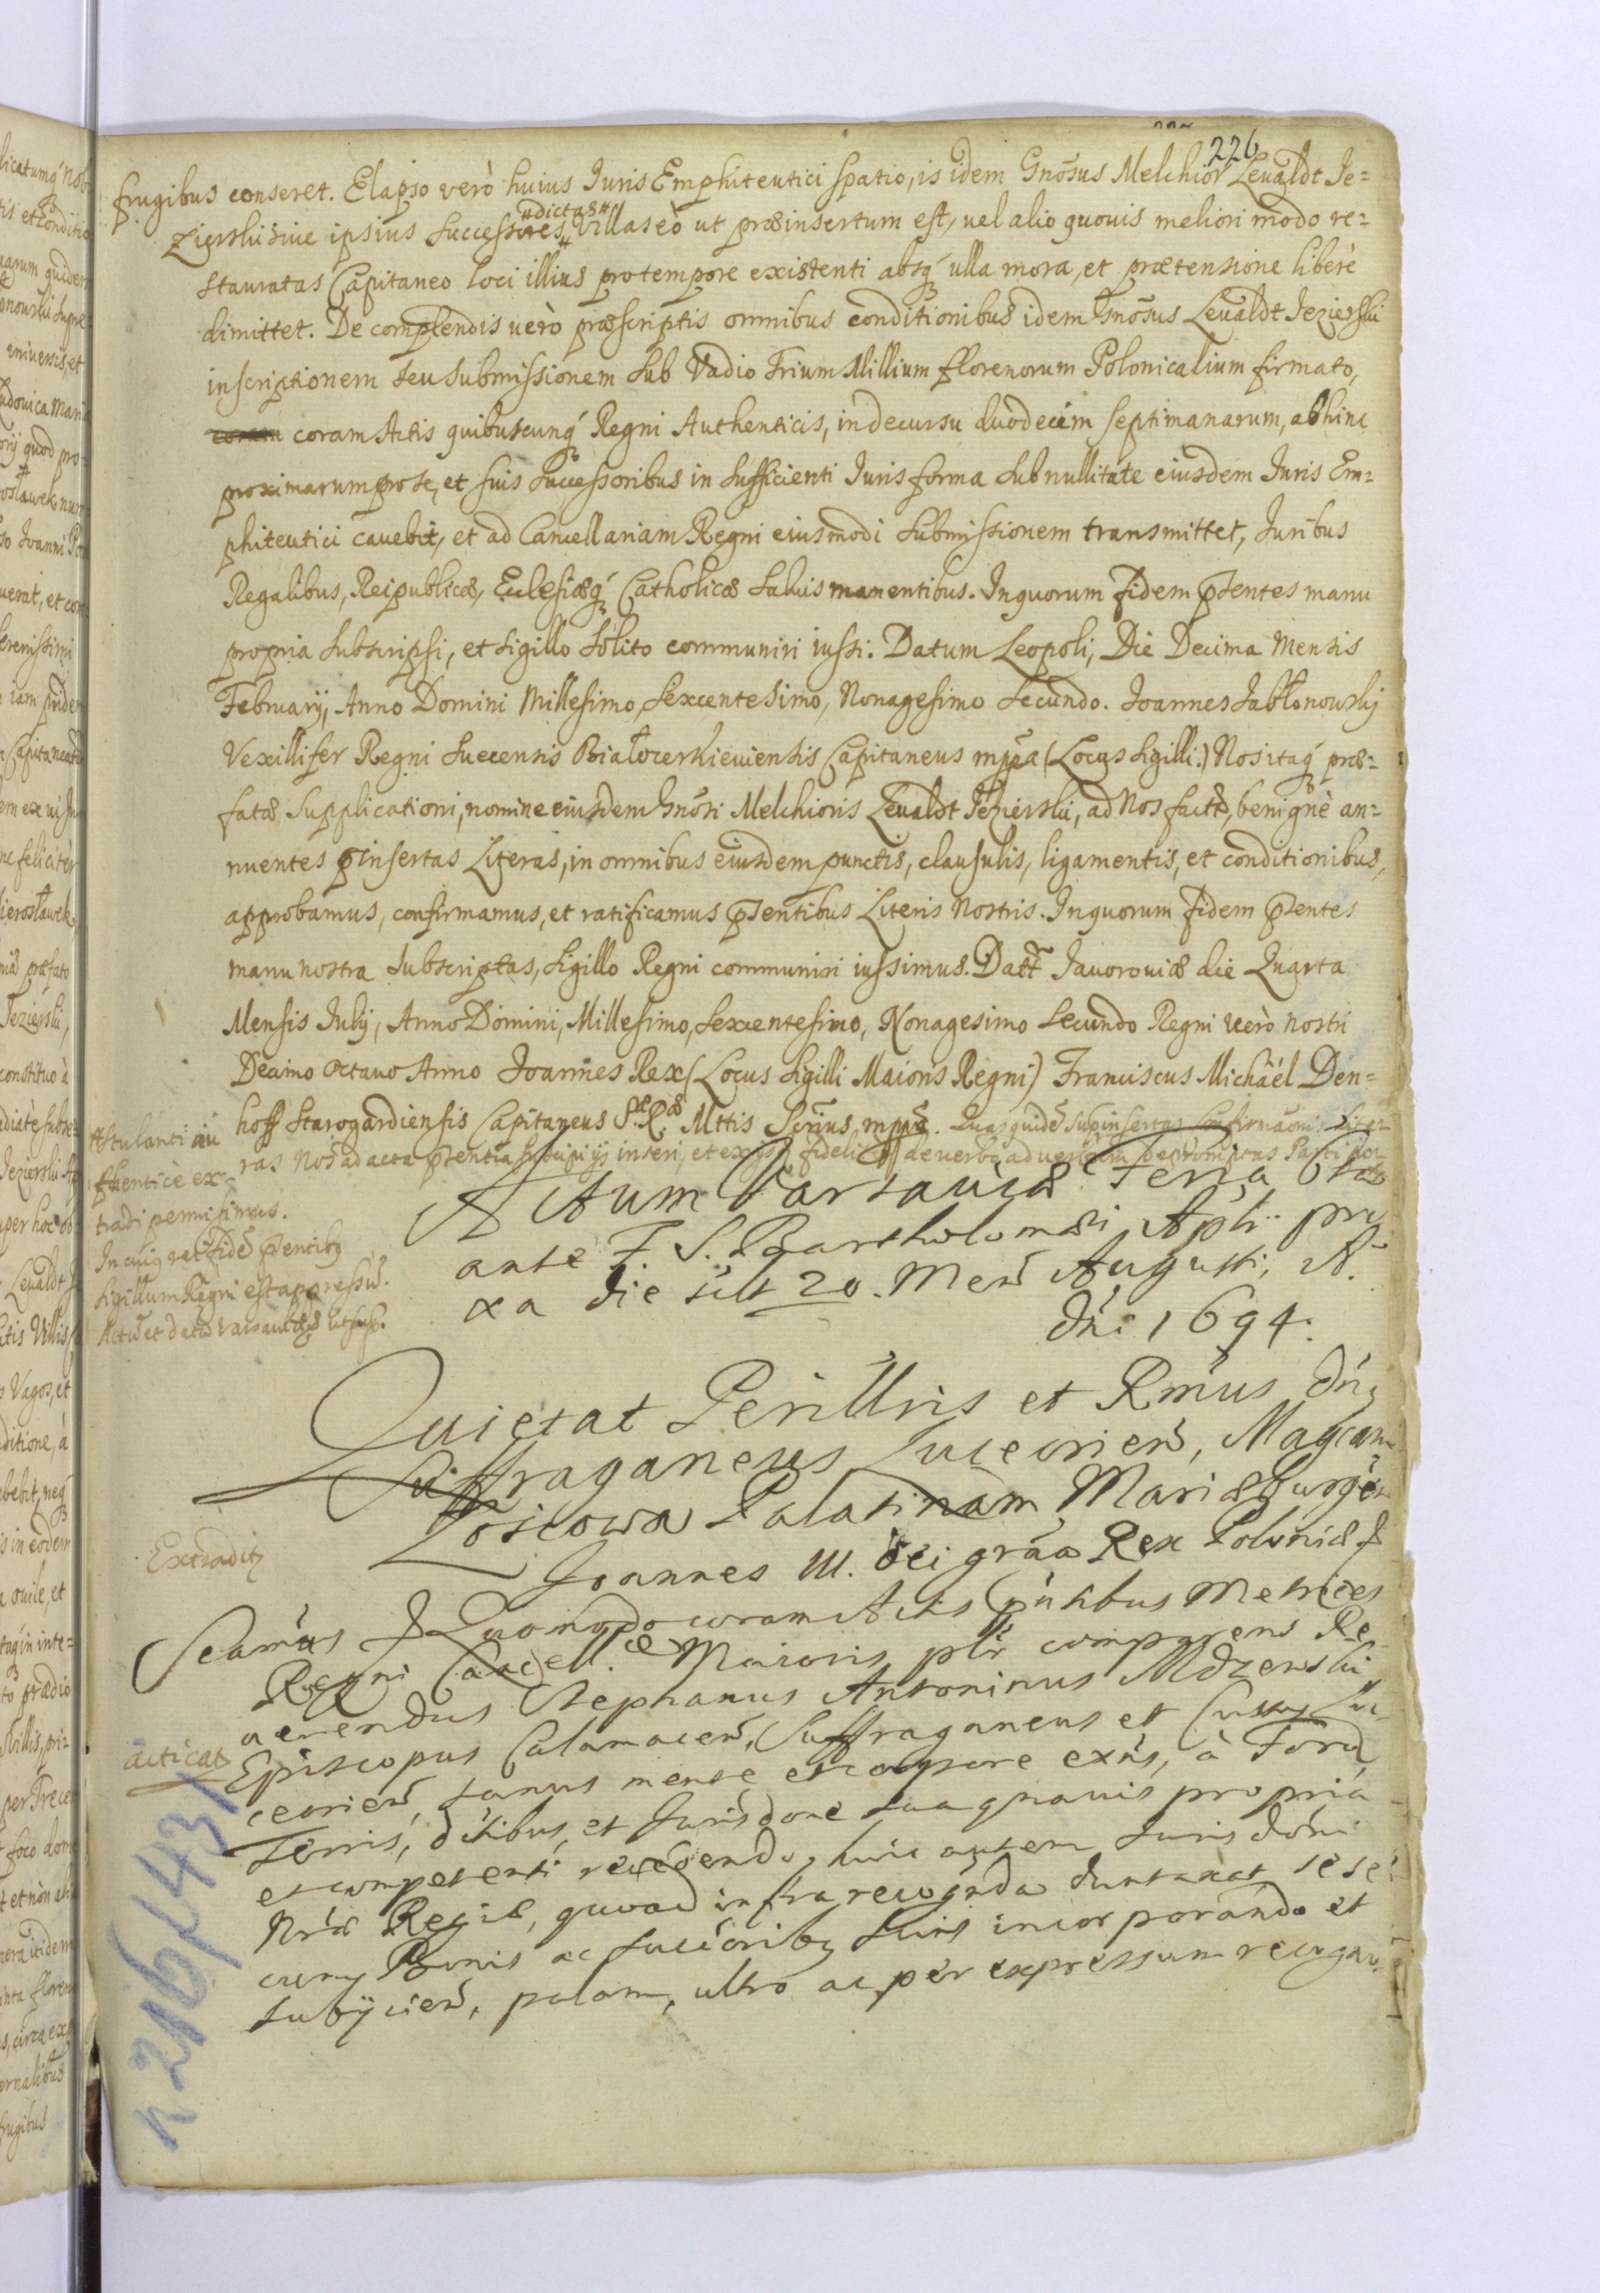 226
frugibus conseret. Elapso verò huius Iuris Emphiteutici spatio, is idem Gnōsus Melchior Levaldt Ie=
zierski siue ipsius Successores, dictas Villas eò ut præinsertum est, uel alio quouis meliori modo re=
stauratas Capitaneo loci illius pro tempore existenti absq́ ulla mora, et prætensione liberè
dimittet. De complendis uerò præscriptis omnibus conditionibus idem Gnōsus Levaldt Iezierski
inscriptionem seu submissionem sub Vadio Trium Millium florenorum Polonicalium firmato,
coram Actis quibuscunq́ Regni Authenticis, in decursu duodecim septimanarum, ab hinc
proximarum pro se, et suis Successoribus in sufficienti Iuris forma sub nullitate eiusdem Iuris Em=
phiteutici cauebit, et ad Cancellariam Regni eiusmodi Submissionem transmittet, Iuribus
Regalibus, Reipublicæ, Eclesiæq́ Catholicæ Saluis manentibus. In quorum fidem pſentes manu
propria subscripsi, et sigillo solito communiri iussi. Datum Leopoli, Die Decima Mensis
February, Anno Domini Millesimo, Sexcentesimo, Nonagesimo Secundo. Ioannes Jabłonowskÿ
Vexillifer Regni Suecensis Białocerkieuiensis Capitaneus mppa (Locus sigilli.) Nos itaq́ præ=
fatæ Supplicationi, nomine eiusdem Gnōsi Melchioris Levaldt Iezierski, ad Nos factæ, benignè an=
nuentes pinsertas Literas, in omnibus eiusdem punctis, clausulis, ligamentis, et conditionibus,
approbamus, confirmamus, et ratificamus pſentibus Literis Nostris. In quorum fidem pſentes
manu nostra Subscriptas, Sigillo Regni communiri iussimus. Datt Iavoroviæ die Quarta
Mensis Iulÿ, Anno Domini, Millesimo, Sexcentesimo, Nonagesimo Secundo Regni uerò Nostri
Decimo Octauo Anno Joannes Rex (Locus Sigilli Maioris Regni) Franciscus Michäel Den=
hoff Starogardiensis Capitaneus S. R. Mttis Scrius mpp. Quas quidē supinsertas Confirmaōnis Lite=
ras Nos ad acta pſentia suscipi ÿs inseri, et ex ÿs fideli de uerbo ad uerbum depromptas Parti po=
stulanti au
thentice ex=
tradi permisimus.
In cuiq rei fidē pſentibq
sigillum Regni est appressū.
Actū et datū Varsauiæ ut sup.
Actum Varsauiæ Feria
ante F. S. Bartholomæi Apli pro
xa die scilt 20. Mens̄ Augusti, A.
Dn̄i 1694.
Quietat Perillris et Rmus Dn̄s
Suffraganeus Luceorien̄, Magcam
Łosiowa Palatinam Mariæburgen
Extradit
Joannes III. Dei grãa Rex Poloniæ &
Seamus & Quomodo coram Actis pntibus Metrices
Regni Cancell. Maioris plr comparens Re
uerendus Stephanus Antoninus Mdzewski
acticat
Episcopus Calamacen̄, Suffraganeus et Custos Lu
ceorien̄, sanus mente et corpore exn̄s, à Foro,
Terris, dītibus, et Iurisdone sua quauis propria
et competenti recedendo, huic autem Iurisdoni
Nræ Regiæ, quoad infra recognda duntaxat se sé
cum Bonis ac succoribq suis incorporando et
subÿcien̄, palam, ultro ac per expressum recogn.
n 216/431